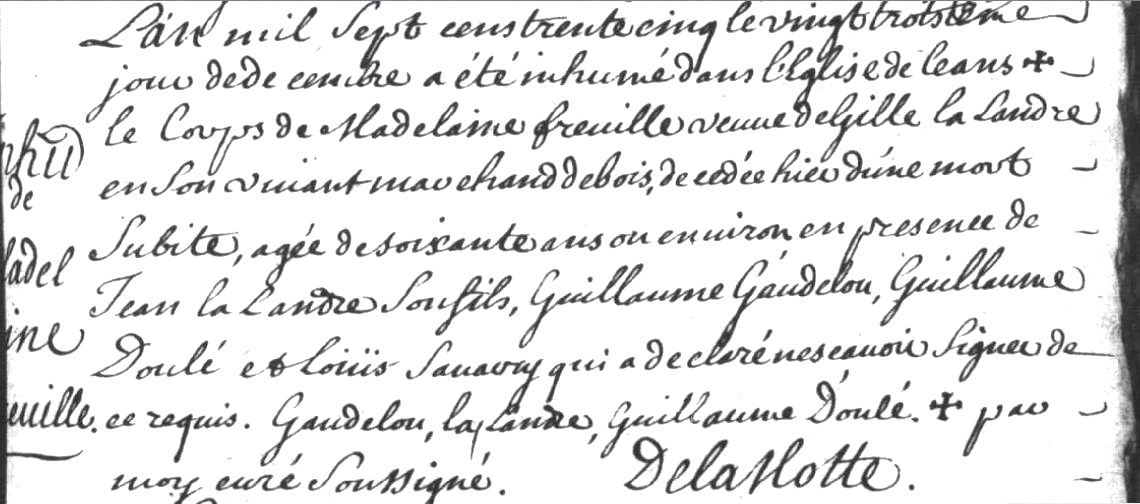 L'an mil Sept cens trente cinq le vingt troisieme
jour de decembre a été inhumé dans l'Eglise de ceans ✝
inhu
le Corps de Madelaine freuille veuue de Gille la Landre
de
en Son viuant marchand de bois, decedée hier d'une mort
Subite, agée de soixante ans ou enuiron en presence de
Madel
Jean la Landre Son fils, Guillaume Gaudelou, Guillaume
eine
Doulé et Loüis Sauavry qui a declaré ne scauoir Signer de
freuille. ce requis. Gaudelou, la Landre, Guillaume Doulé. ✝ par
moy curé Soussigné. DelaMotte.